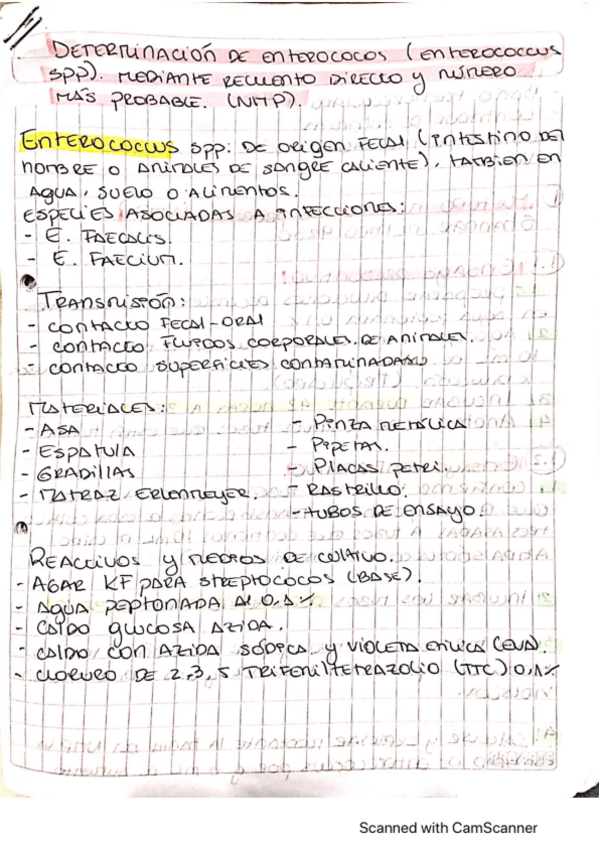 DETERMINACIÓN DE ENTEROCOCOS (ENTEROCOCCUS
SPP). MEDIANTE RECUENTO DIRECTO Y NÚMERO
MÁS PROBABLE. (NMP).
ENTEROCOCCUS SPP: DE ORIGEN FECAL (INTESTINO DEL
HOMBRE O ANIMALES DE SANGRE CALIENTE), TAMBIEN EN
AGUA, SUELO O ALIMENTOS.
ESPECIES ASOCIADAS A INFECCIONES:
- E. FAECALIS.
- E. FAECIUM.
TRANSMISIÓN:
- CONTACTO FECAL-ORAL
- CONTACTO FLUIDOS CORPORALES DE ANIMALES.
- CONTACTO SUPERFICIES CONTAMINADAS
MATERIALES:
- ASA
- ESPATULA
- GRADILLAS
- MATRAZ ERLENMEYER.
- PINZA METÁLICA
- PIPETAS.
- PLACAS PETRI.
- RASTRILLO.
- TUBOS DE ENSAYO.
REACTIVOS Y MEDIOS DE CULTIVO.
- AGAR KF PARA STREPTOCOCOS (BASE).
- AGUA PEPTONADA AL 0,1%
- CALDO GLUCOSA AZIDA.
- CALDO CON AZIDA SÓDICA Y VIOLETA ETILICA (EVA).
- CLORURO DE 2,3,5 TRIFENILTETRAZOLIO (TTC) 0,1%
Scanned with CamScanner